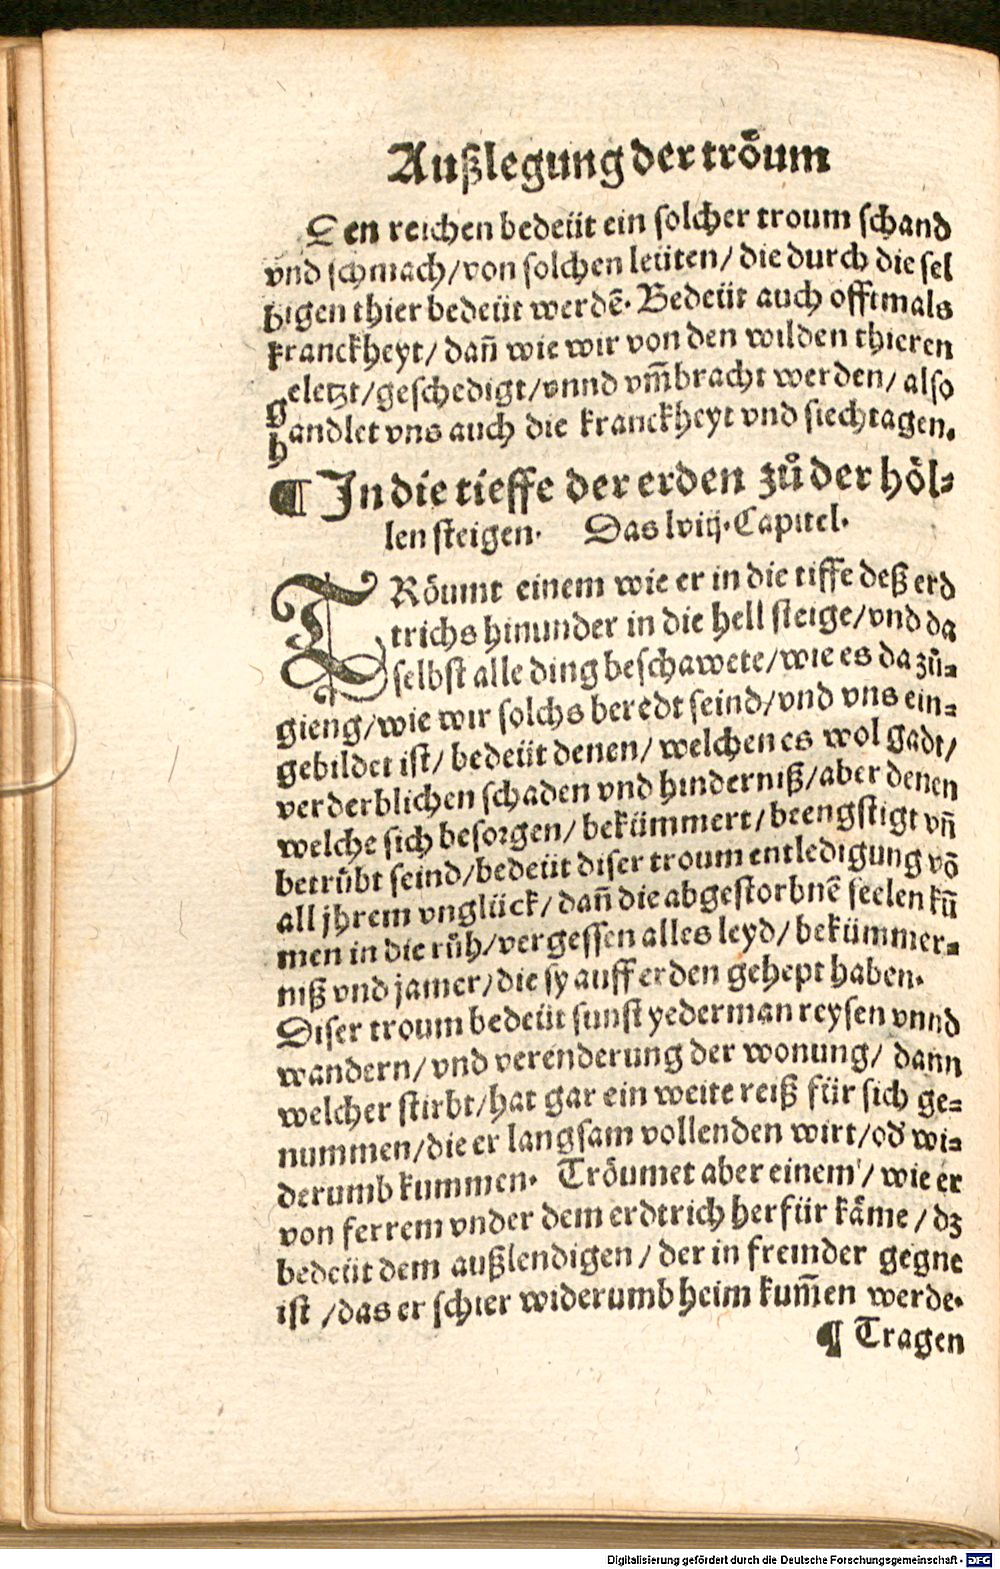 Außlegung der tröum
Den reichen bedeüt ein solcher troum schand
vnd schmach/von solchen leüten/ die durch die sel
bigen thier bedeüt werdē. Bedeüt auch offtmals
kranckheyt/ dañ wie wir von den wilden thieren
geletzt/geschedigt/vnnd vm̃bracht werden/ also
handlet vns auch die kranckheyt vnd siechtagen.
¶ In die tieffe der erden zů der höl⸗
len steigen. Das lviij. Capitel.
TRöumt einem wie er in die tiffe deß erd
trichs hinunder in die hell steige/vnd da
selbst alle ding beschawete/wie es da zů⸗
gieng/wie wir solchs beredt seind/vnd vns ein⸗
gebildet ist/ bedeüt denen/ welchen es wol gadt/
verderblichen schaden vnd hinderniß/aber denen
welche sich besorgen/ bekümmert/beengstigt vñ
betrübt seind/bedeüt diser troum entledigung võ
all jhrem vnglück/ dañ die abgestorbnē seelen kū
men in die růh/vergessen alles leyd/ bekümmer⸗
niß vnd jamer/die sy auff erden gehept haben.
Diser troum bedeüt sunst yederman reysen vnnd
wandern/vnd verenderung der wonung/ dann
welcher stirbt/hat gar ein weite reiß für sich ge⸗
nummen/die er langsam vollenden wirt/od' wi⸗
derumb kummen. Tröumet aber einem / wie er
von ferrem vnder dem erdtrich herfür käme / dz
bedeüt dem außlendigen/ der in fremder gegne
ist /das er schier widerumb heim kum̃en werde.
¶ Tragen
Digitalisierung gefördert durch die Deutsche Forschungsgemeinschaft - DFG